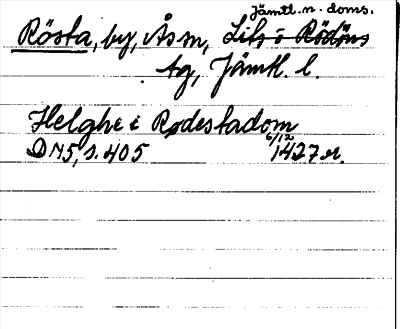 Jämtl. n. doms.
Rösta, by, Ås sn, Lits o Rödöns
tg, Jämtl. l.
Helghe i Rødestadom
6/12
DN 5, s. 405 1427 or.